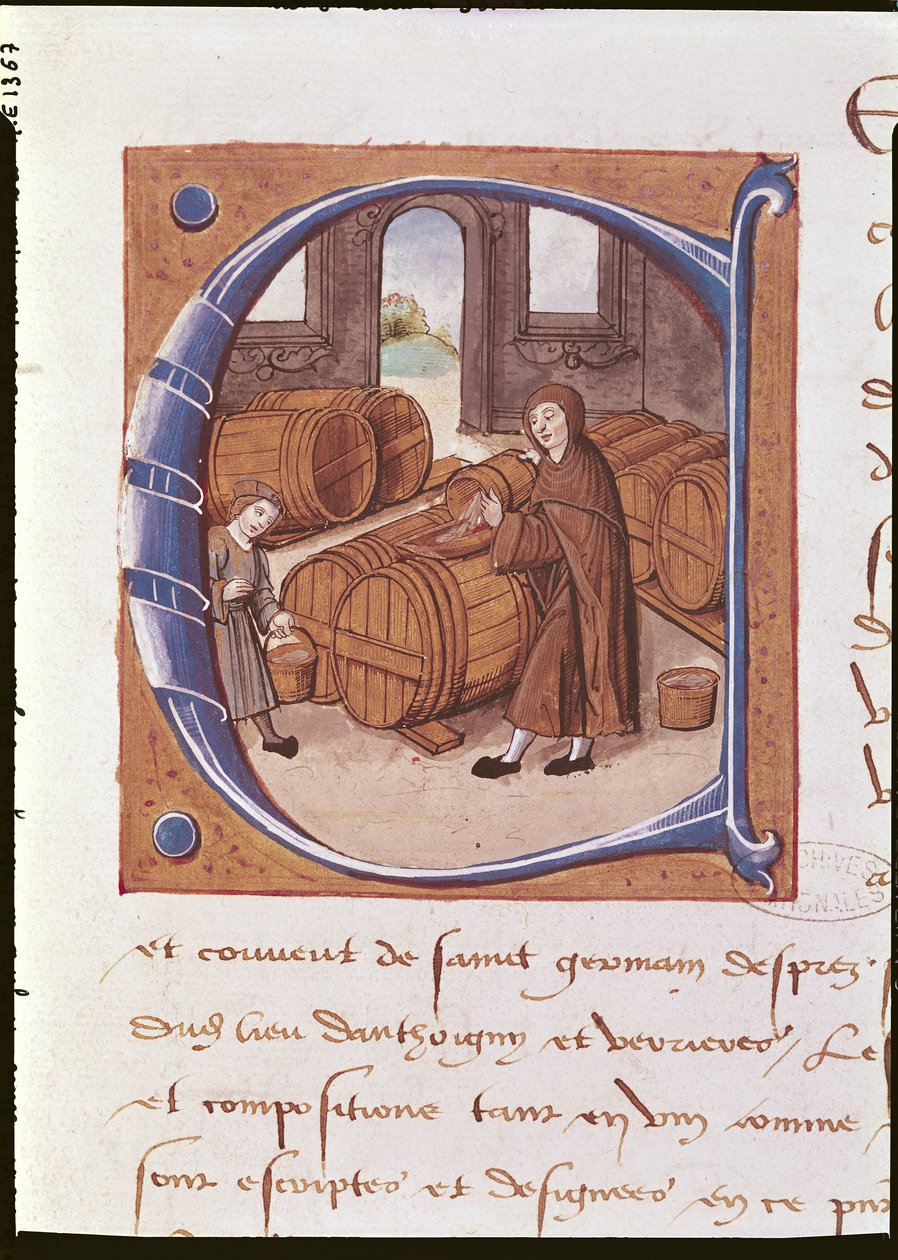 E1367
C
ARCHIVES NATIONALES
et couvent de sainct germain desprez
dud lieu danthoigny et verrieres / Le
et compositione tant en vin comme
sont escriptes et designees en ce